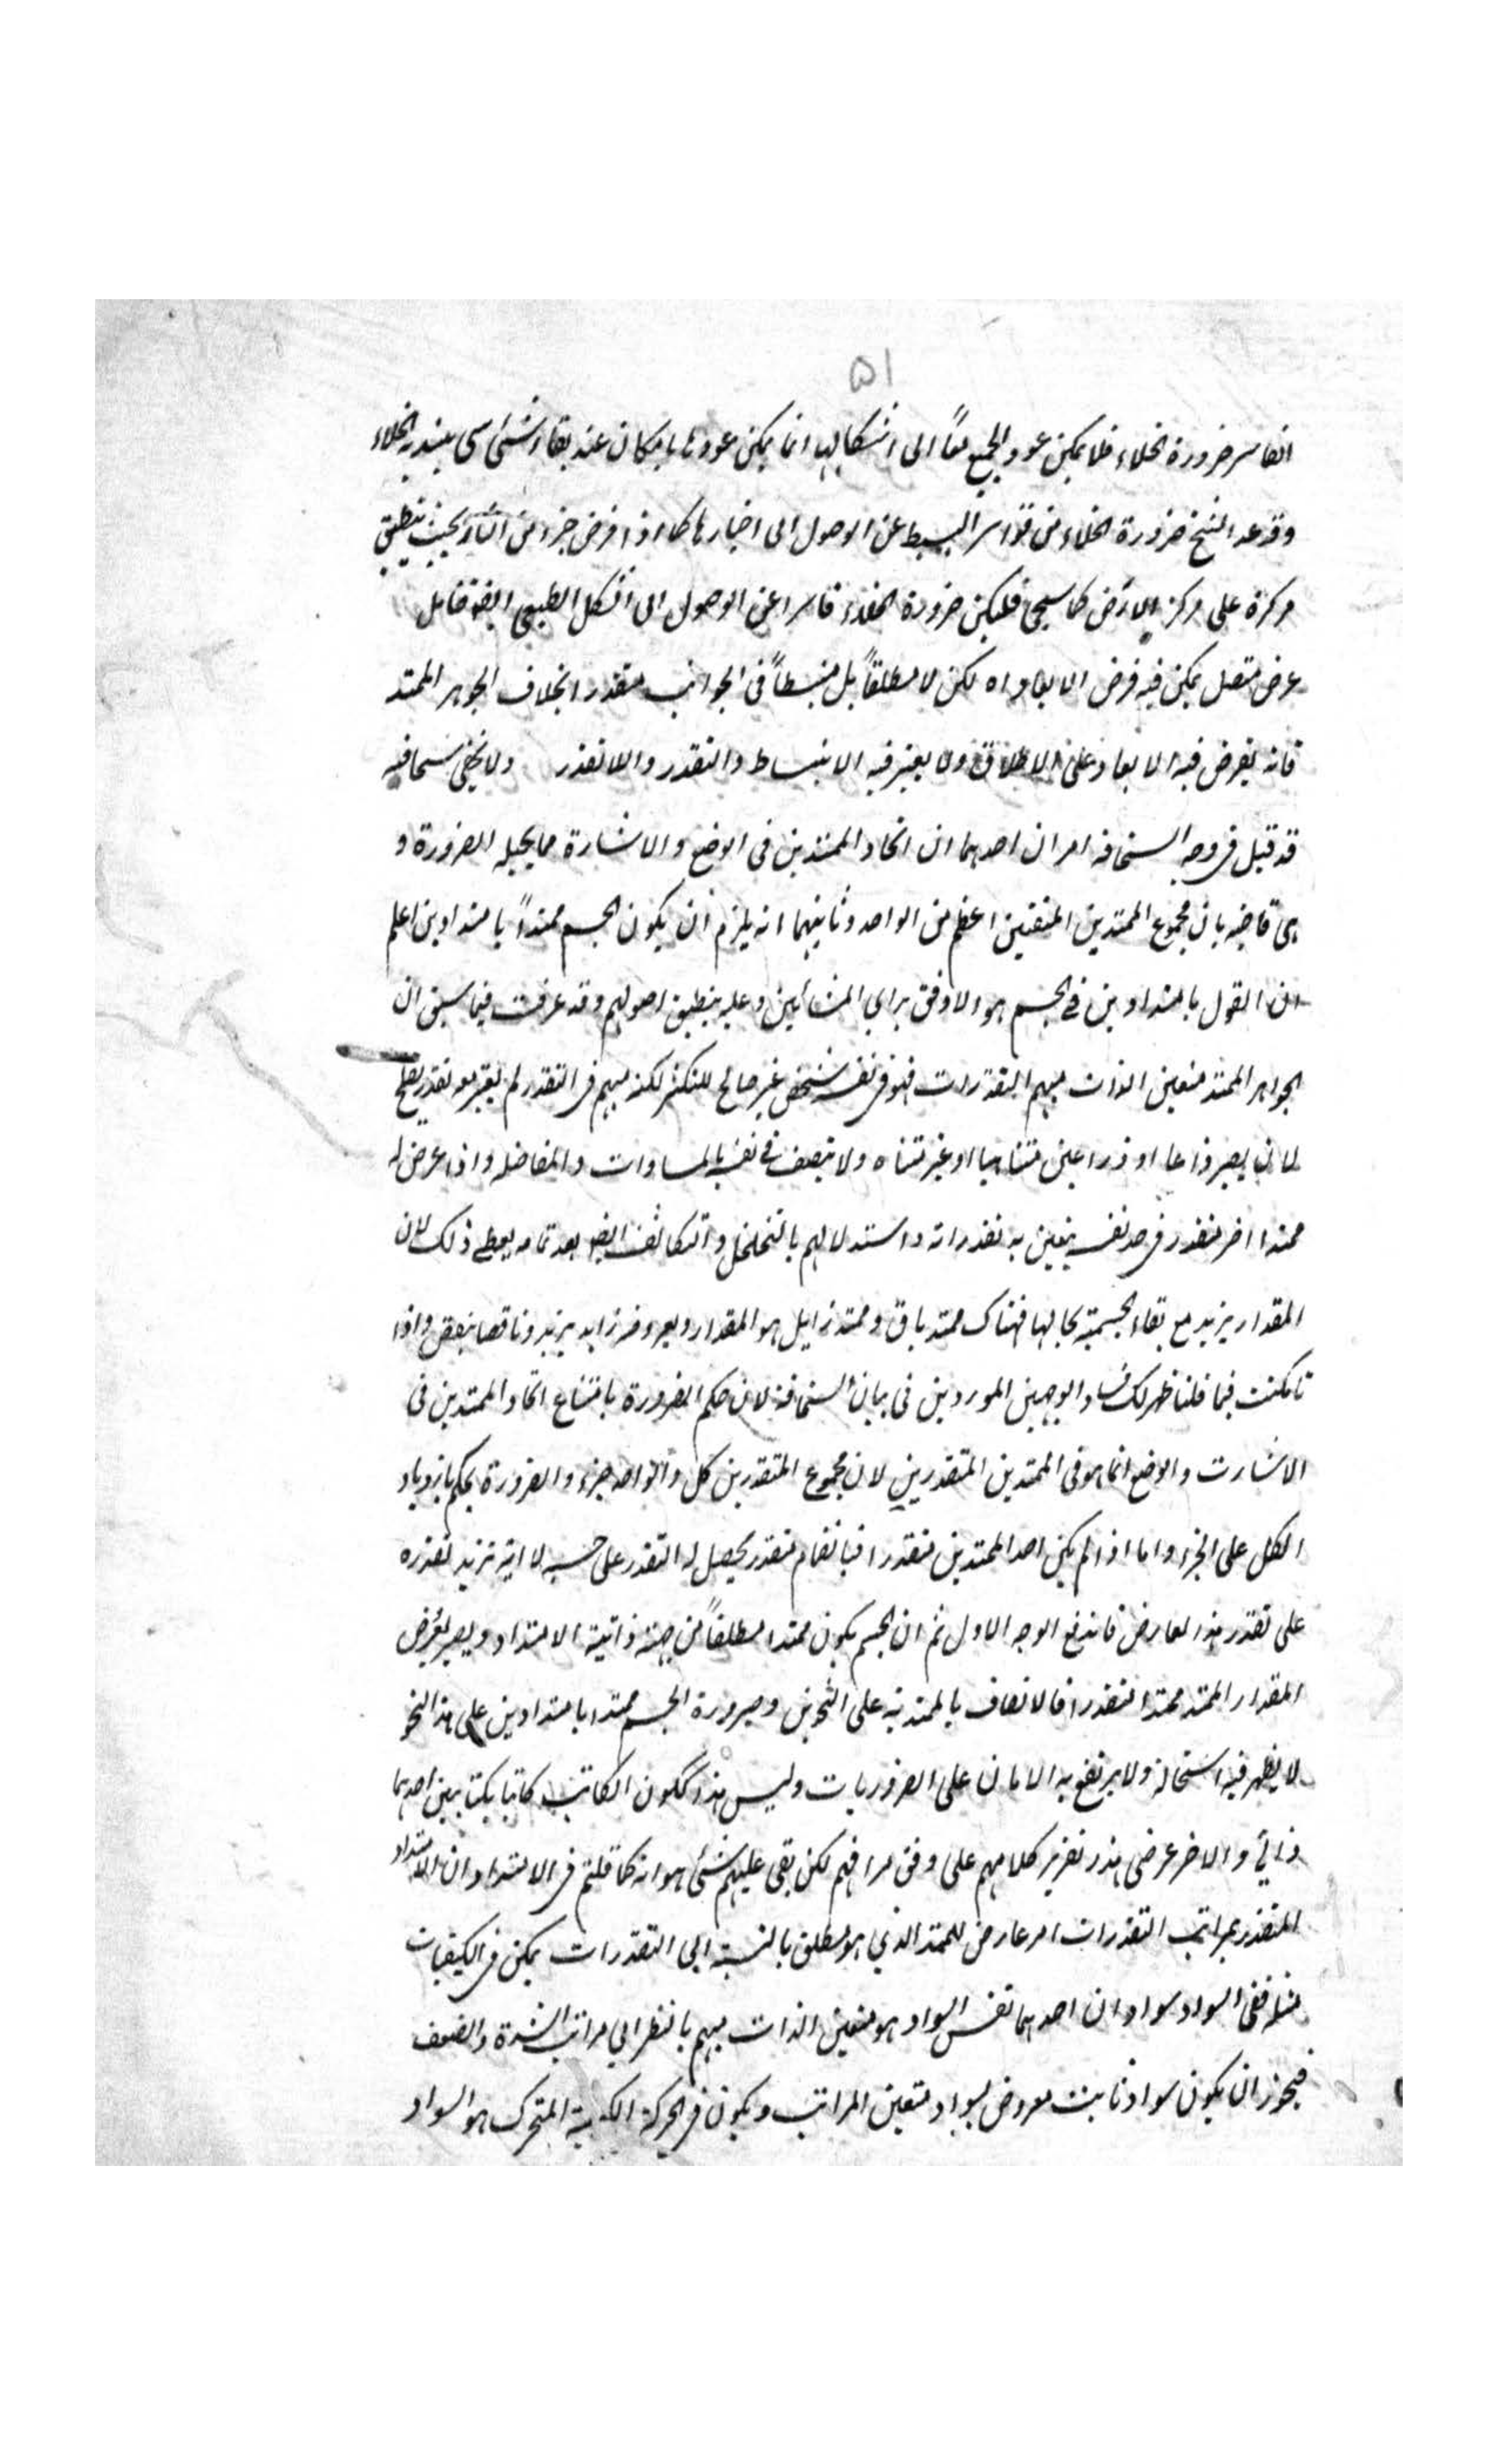 ٥١
القاسر ضرورة الخلاء فلا يمكن عود الجميع معاً الى اشكالها انما يمكن عودها بامكان عند بقاء شئ سى الخلاء
وقد عد الشيخ ضرورة الخلاء من قواسر البسيط عن الوصول الى احيازها كما اذا فرض جزء من النار بحيث ينطبق
مركزه على مركز الارض كما سيجئ فليكن ضرورة الخلاء قاسرا عن الوصول الى الشكل الطبعى ايضا فتامل
عرض متصل يمكن فيه فرض الابعاد اه لكن لا مطلقاً بل منبسطاً فى الجوانب متقدرا بخلاف الجوهر الممتد
فانه يفرض فيه الابعاد على الاطلاق ولا يعتبر فيه الانبساط والتقدر واللاتقدر ولا يخفى سخافته
قد قيل فى وجه السخافة امران احدهما ان اتحاد الممتدين فى الوضع والاشارة مما يحيله الضرورة و
هى قاضية بان مجموع الممتدين المتفقين اعظم من الواحد وثانيهما انه يلزم ان يكون الجسم ممتداً بامتدادين اعلم
ان القول بامتدادين فى الجسم هو الاوفق براى المشائين وعليه ينطبق اصولهم وقد عرفت فيما سبق ان
الجواهر الممتد متعين الذات مبهم التقدرات فهو فى نفسه شخص غير صالح للتكثر لكنه مبهم فى التقدر لم يعتبر معه تقدر يصلح
لان يصير ذراعا او ذراعين متناهيا او غير متناه ولا يتصف فى نفسه بالمساوات والمفاضلة واذا عرض له
ممتدا اخر متقدر فى حد نفسه يتعين به تقدراته واستدلالهم بالتخلخل والتكاثف ايضا بعد تمامه يعطى ذلك لان
المقدار يزيد مع بقاء الجسمية بحالها فهناك ممتد باق وممتد زايل هو المقدار ومعروضه زايد يزيد وناقصا بنقص واذا
تمكنت فيما قلنا ظهر لك فساد الوجهين الموردين فى بيان السخافة لان حكم الضرورة بامتناع اتحاد الممتدين فى
الاشارت والوضع انما هو فى الممتدين المتقدرين لان مجموع المتقدرين كل والواحد جزء والضرورة يحكم بازدياد
الكل على الجزء واما اذا لم يكن احد الممتدين متقدرا فبانضمام متقدر يحصل له التقدر على حسبه لا انه يزيد تقدره
على تقدر هذا العارض فاندفع الوجه الاول ثم ان الجسم يكون ممتدا مطلقاً من جهة ذاتية الامتداد ويصير بعروض
المقدار الممتد ممتدا متقدرا فالاتصاف بالممتدية على النحوين وصيرورة الجسم ممتدا بامتدادين على هذا النحو
لا يظهر فيه استحالة ولا يرتفع به الامان على الضروريات وليس هذا ككون الكاتب كاتبا بكتابتين احدهما
ذاتي والاخر عرضى هذا تقرير كلامهم على وفق مرامهم لكن بقى عليهم شئ هو انه كما قلتم فى الامتداد ان الامتداد
المتقدر بمراتب التقدرات امر عارض للممتد الذي هو مطلق بالنسبة الى التقدرات يمكن فى الكيفيات
مثله ففى السواد سوادان احدهما نفس السواد هو متعين الذات مبهم بالنظر الى مراتب الشدة والضعف
فيجوز ان يكون سواد ثابت معروض لسواد متعين المراتب ويكون فى الحركة الكيفية المتحرك هو السواد